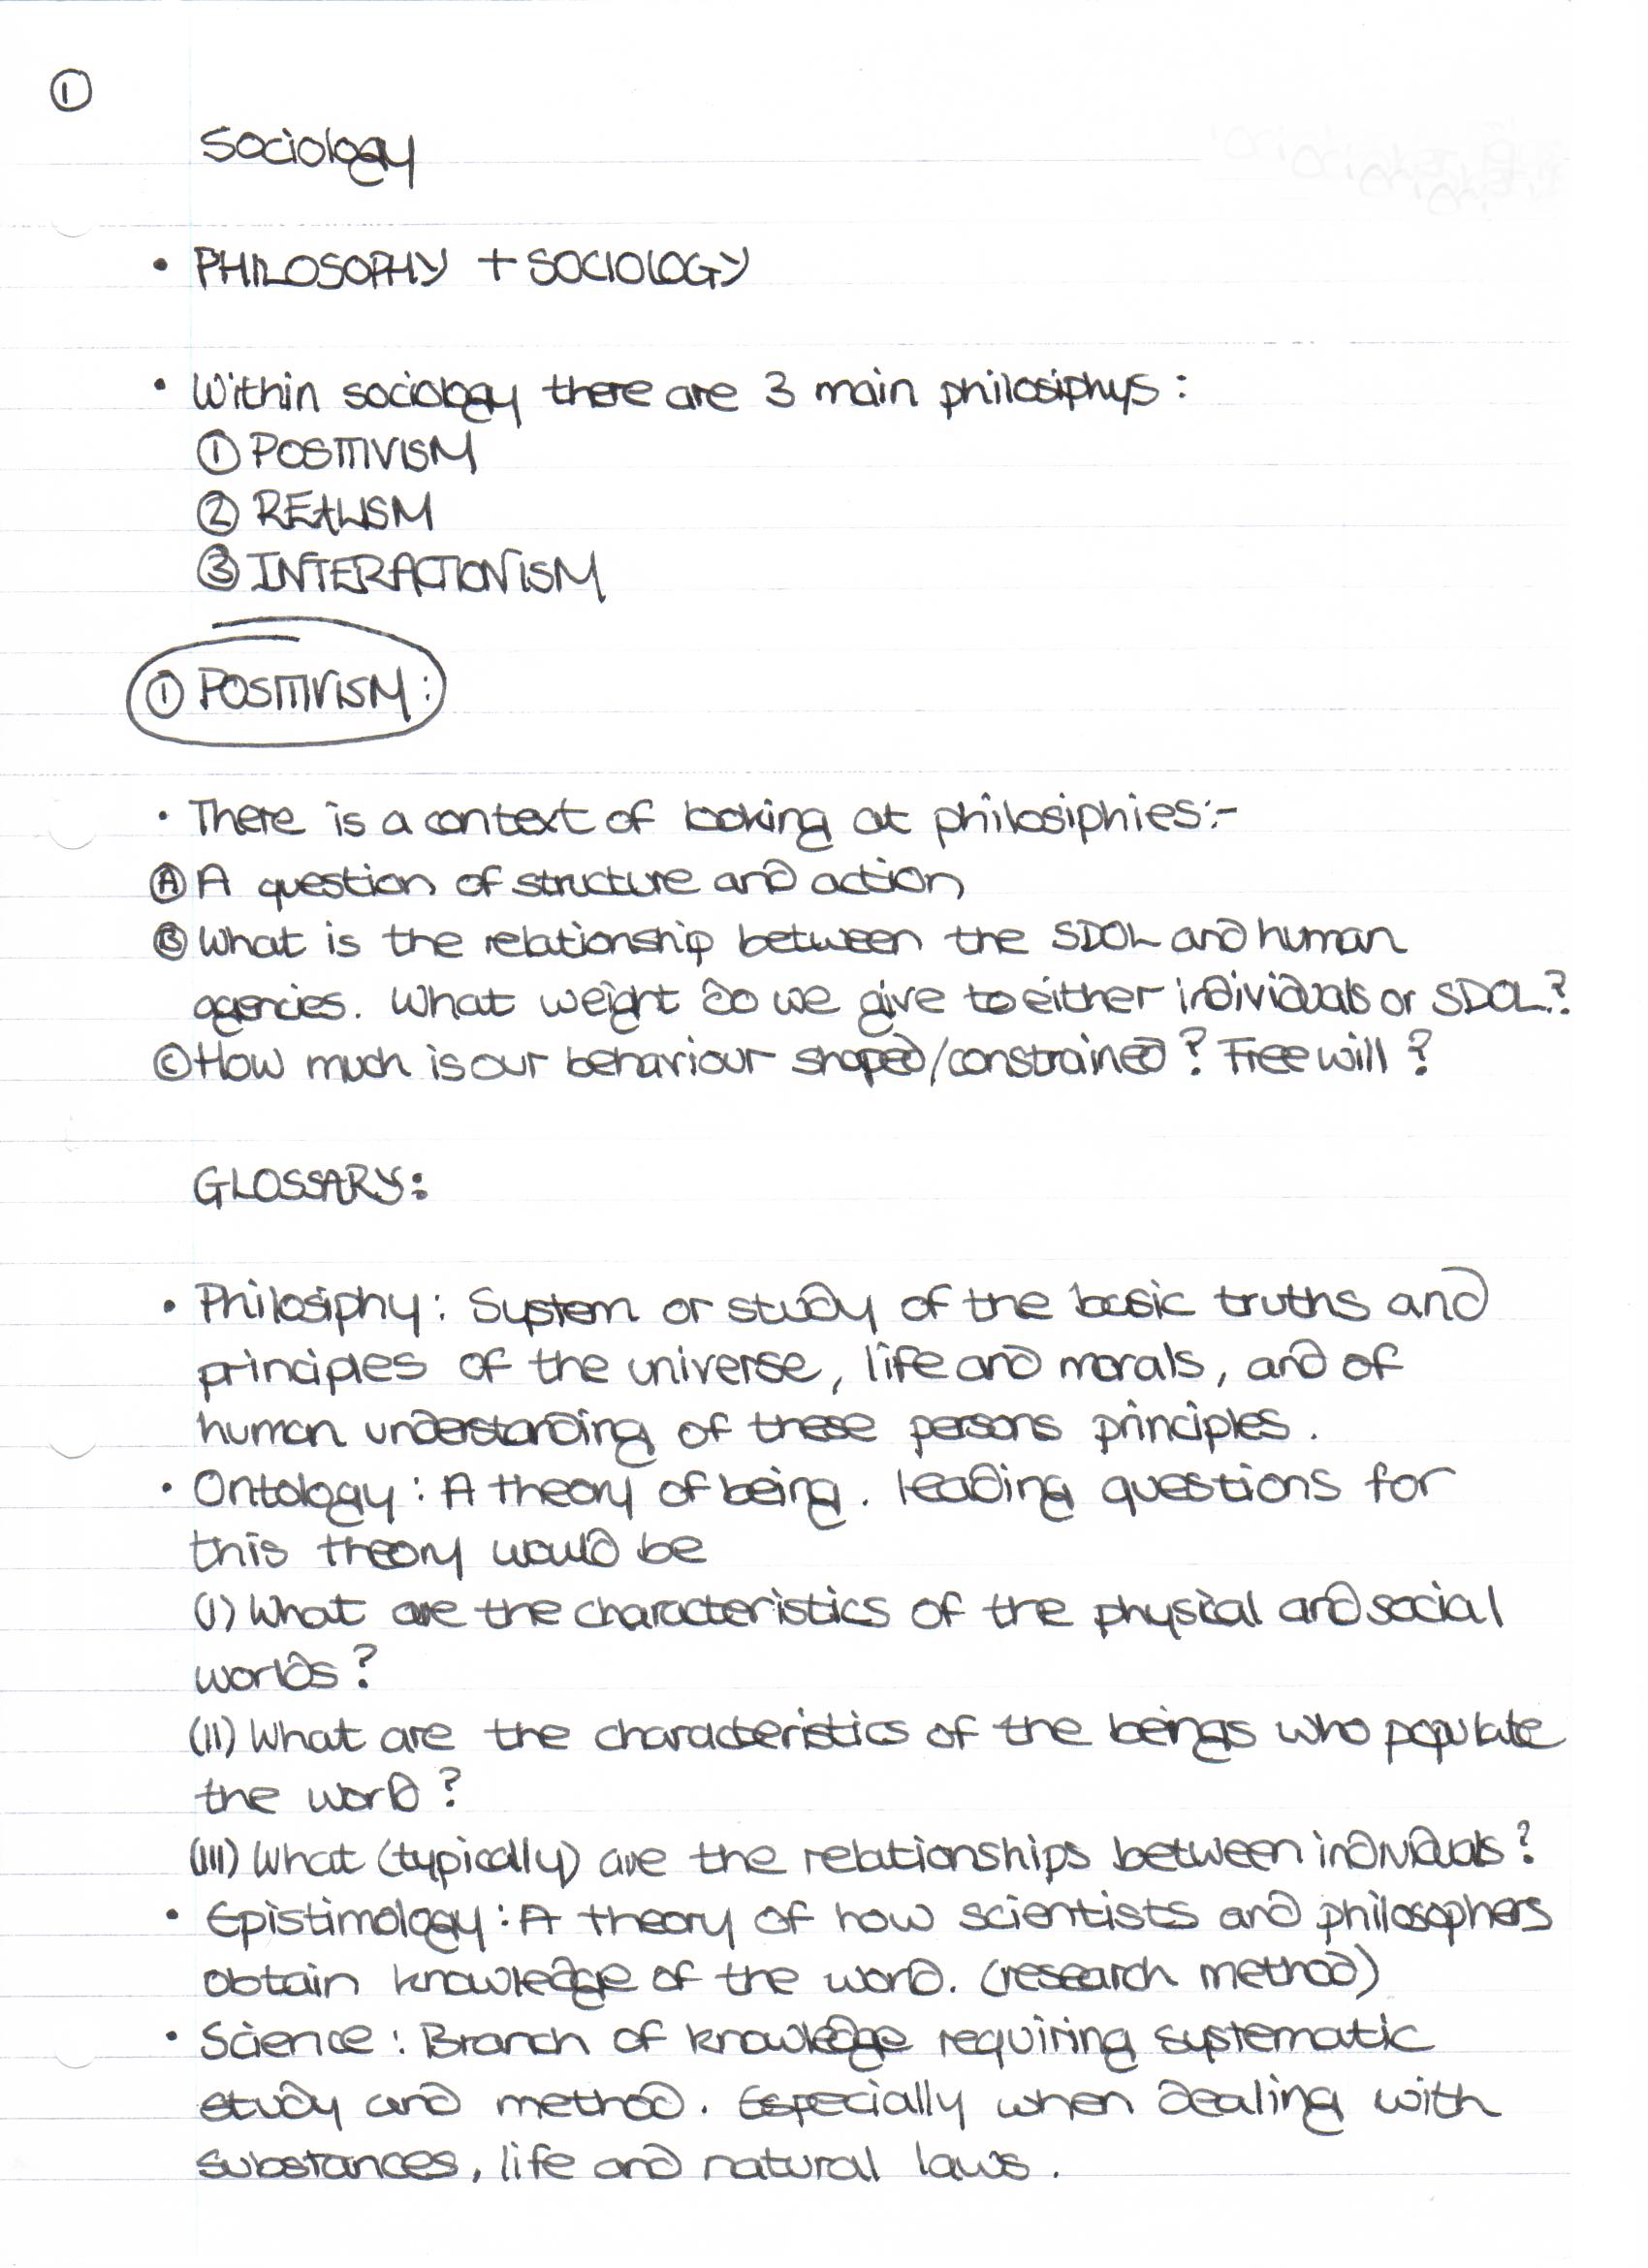 ①
Sociology
• PHILOSOPHY + SOCIOLOGY
• Within sociology there are 3 main philosiphys:
① POSITIVISM
② REALISM
③ INTERACTIONISM
① POSITIVISM:
• There is a context of looking at philosiphies:-
Ⓐ A question of structure and action
Ⓑ What is the relationship between the SDOL and human
agencies. What weight do we give to either individuals or SDOL?
Ⓒ How much is our behaviour shaped/constrained? Free will?
GLOSSARY:
• Philosiphy: System or study of the basic truths and
principles of the universe, life and morals, and of
human understanding of these persons principles.
• Ontology: A theory of being. leading questions for
this theory would be
(I) What are the characteristics of the physical and social
worlds?
(II) What are the characteristics of the beings who populate
the world?
(III) What (typically) are the relationships between individuals?
• Epistimology: A theory of how scientists and philosophers
obtain knowledge of the world. (research method)
• Science: Branch of knowledge requiring systematic
study and method. Especially when dealing with
substances, life and natural laws.